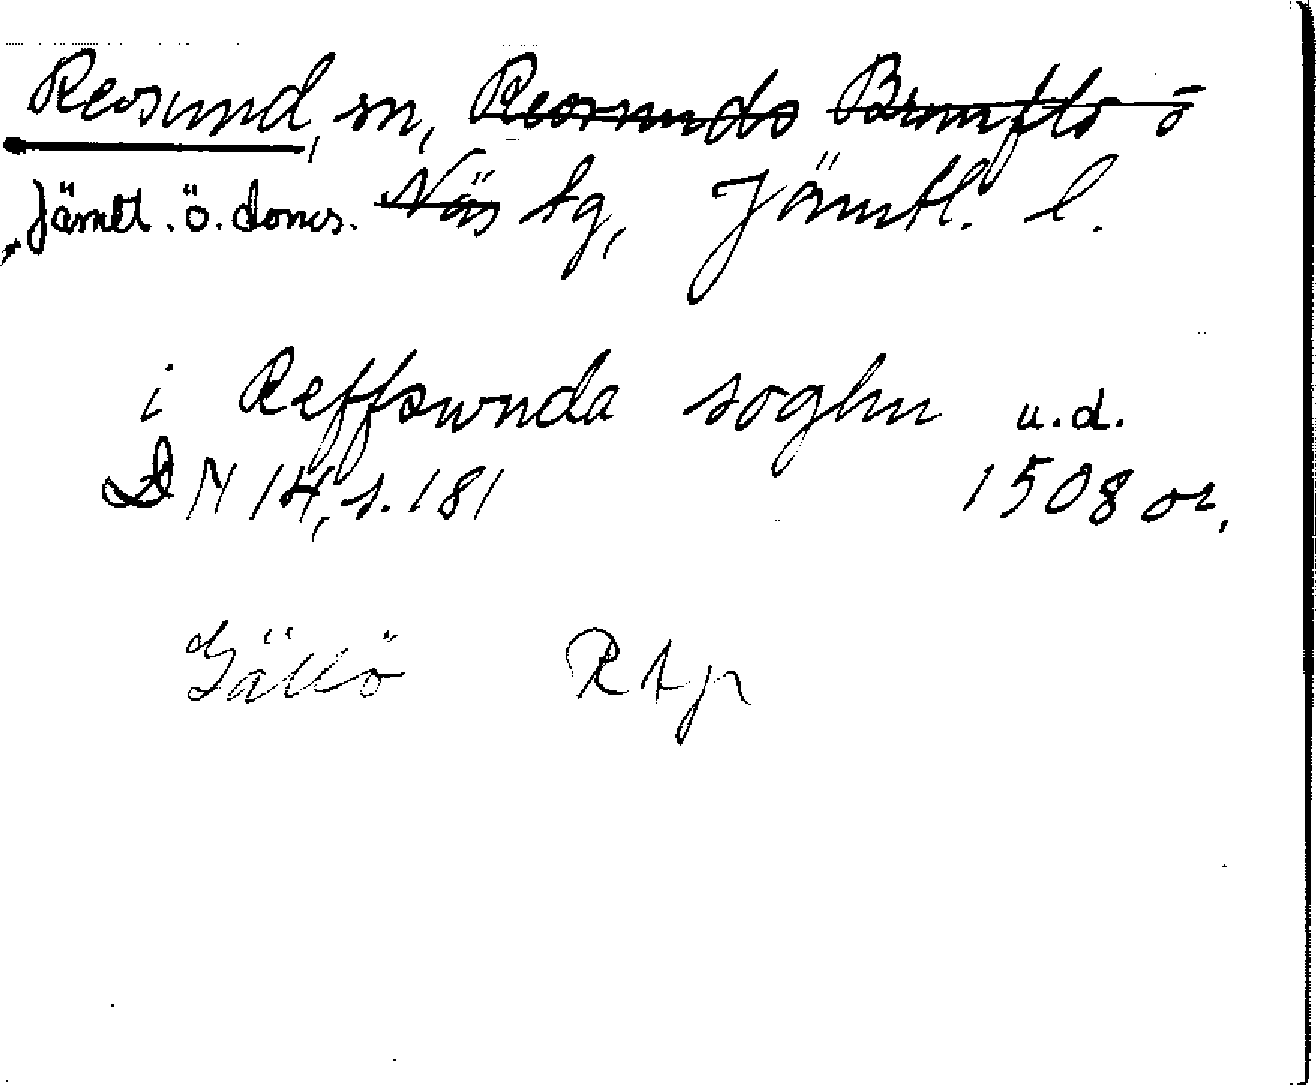 Revsund, sn, Revsunds Brunflo o
Jämtl. ö. doms. Näs tg, Jämtl. l.
i Reffswnda soghn u.d.
DN 14, s. 181 1508 or,
Gällö Rtjr